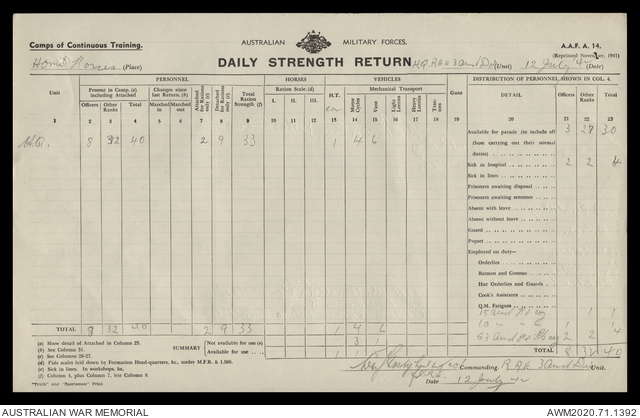 Camps of Continuous Training.
AUSTRALIAN MILITARY FORCES.
A.A.F. A. 14.
(Reprinted November, 1941)
(Place)
DAILY STRENGTH RETURN
H.Q. RAE 3 Aust Div (Unit)
12 July 42 (Date)
PERSONNEL
HORSES
VEHICLES
DISTRIBUTION OF PERSONNEL SHOWN IN COL. 4.
Unit
Present in Camp, (a) including Attached
Changes since last Return. (b)
Attached for Rations only (c)
Detached for Rations only (c)
Total Ration Strength (f)
Ration Scale. (d)
H.T.
Mechanical Transport
Guns
DETAIL
Officers
Other Ranks
Total
Officers
Other Ranks
Total
Marched in
Marched out
I.
II.
III.
Motor Cycles
Vans
Light Lorries
Heavy Lorries
Tractors
1 2 3 4 5 6 7 8 9 10 11 12 13 14 15 16 17 18 19 20 21 22 23
H.Q. 8 32 40 2 9 33 1 4 6
Available for parade (to include all those carrying out their normal duties) 3 27 30
Sick in hospital 2 2 4
Sick in lines
Prisoners awaiting disposal
Prisoners awaiting sentence
Absent with leave
Absent without leave
Guard
Piquet
Employed on duty—
Orderlies
Batmen and Grooms
Hut Orderlies and Guards
Cook's Assistants
Q.M. Fatigues
15 Aust Fd Coy 1 1
10 " " " 1 1
TOTAL 8 32 40 2 9 33 1 4 6
2 2 4
(a) Show detail of Attached in Column 25.
(b) See Column 31.
(c) See Columns 26-27.
(d) Fide scales laid down by Formation Head-quarters, &c., under M.F.R. & I.566.
(e) Sick in lines. In workshops, &c.
(f) Column 4, plus Column 7, less Column 8.
SUMMARY
Not available for use (e) 3 1
Available for use 1 1 5
TOTAL 8 32 40
Commanding, R A E 3 Aust Div Unit.
Date 12 July 42
"Truth" and "Sportsman" Print.
AUSTRALIAN WAR MEMORIAL
AWM2020.71.1392